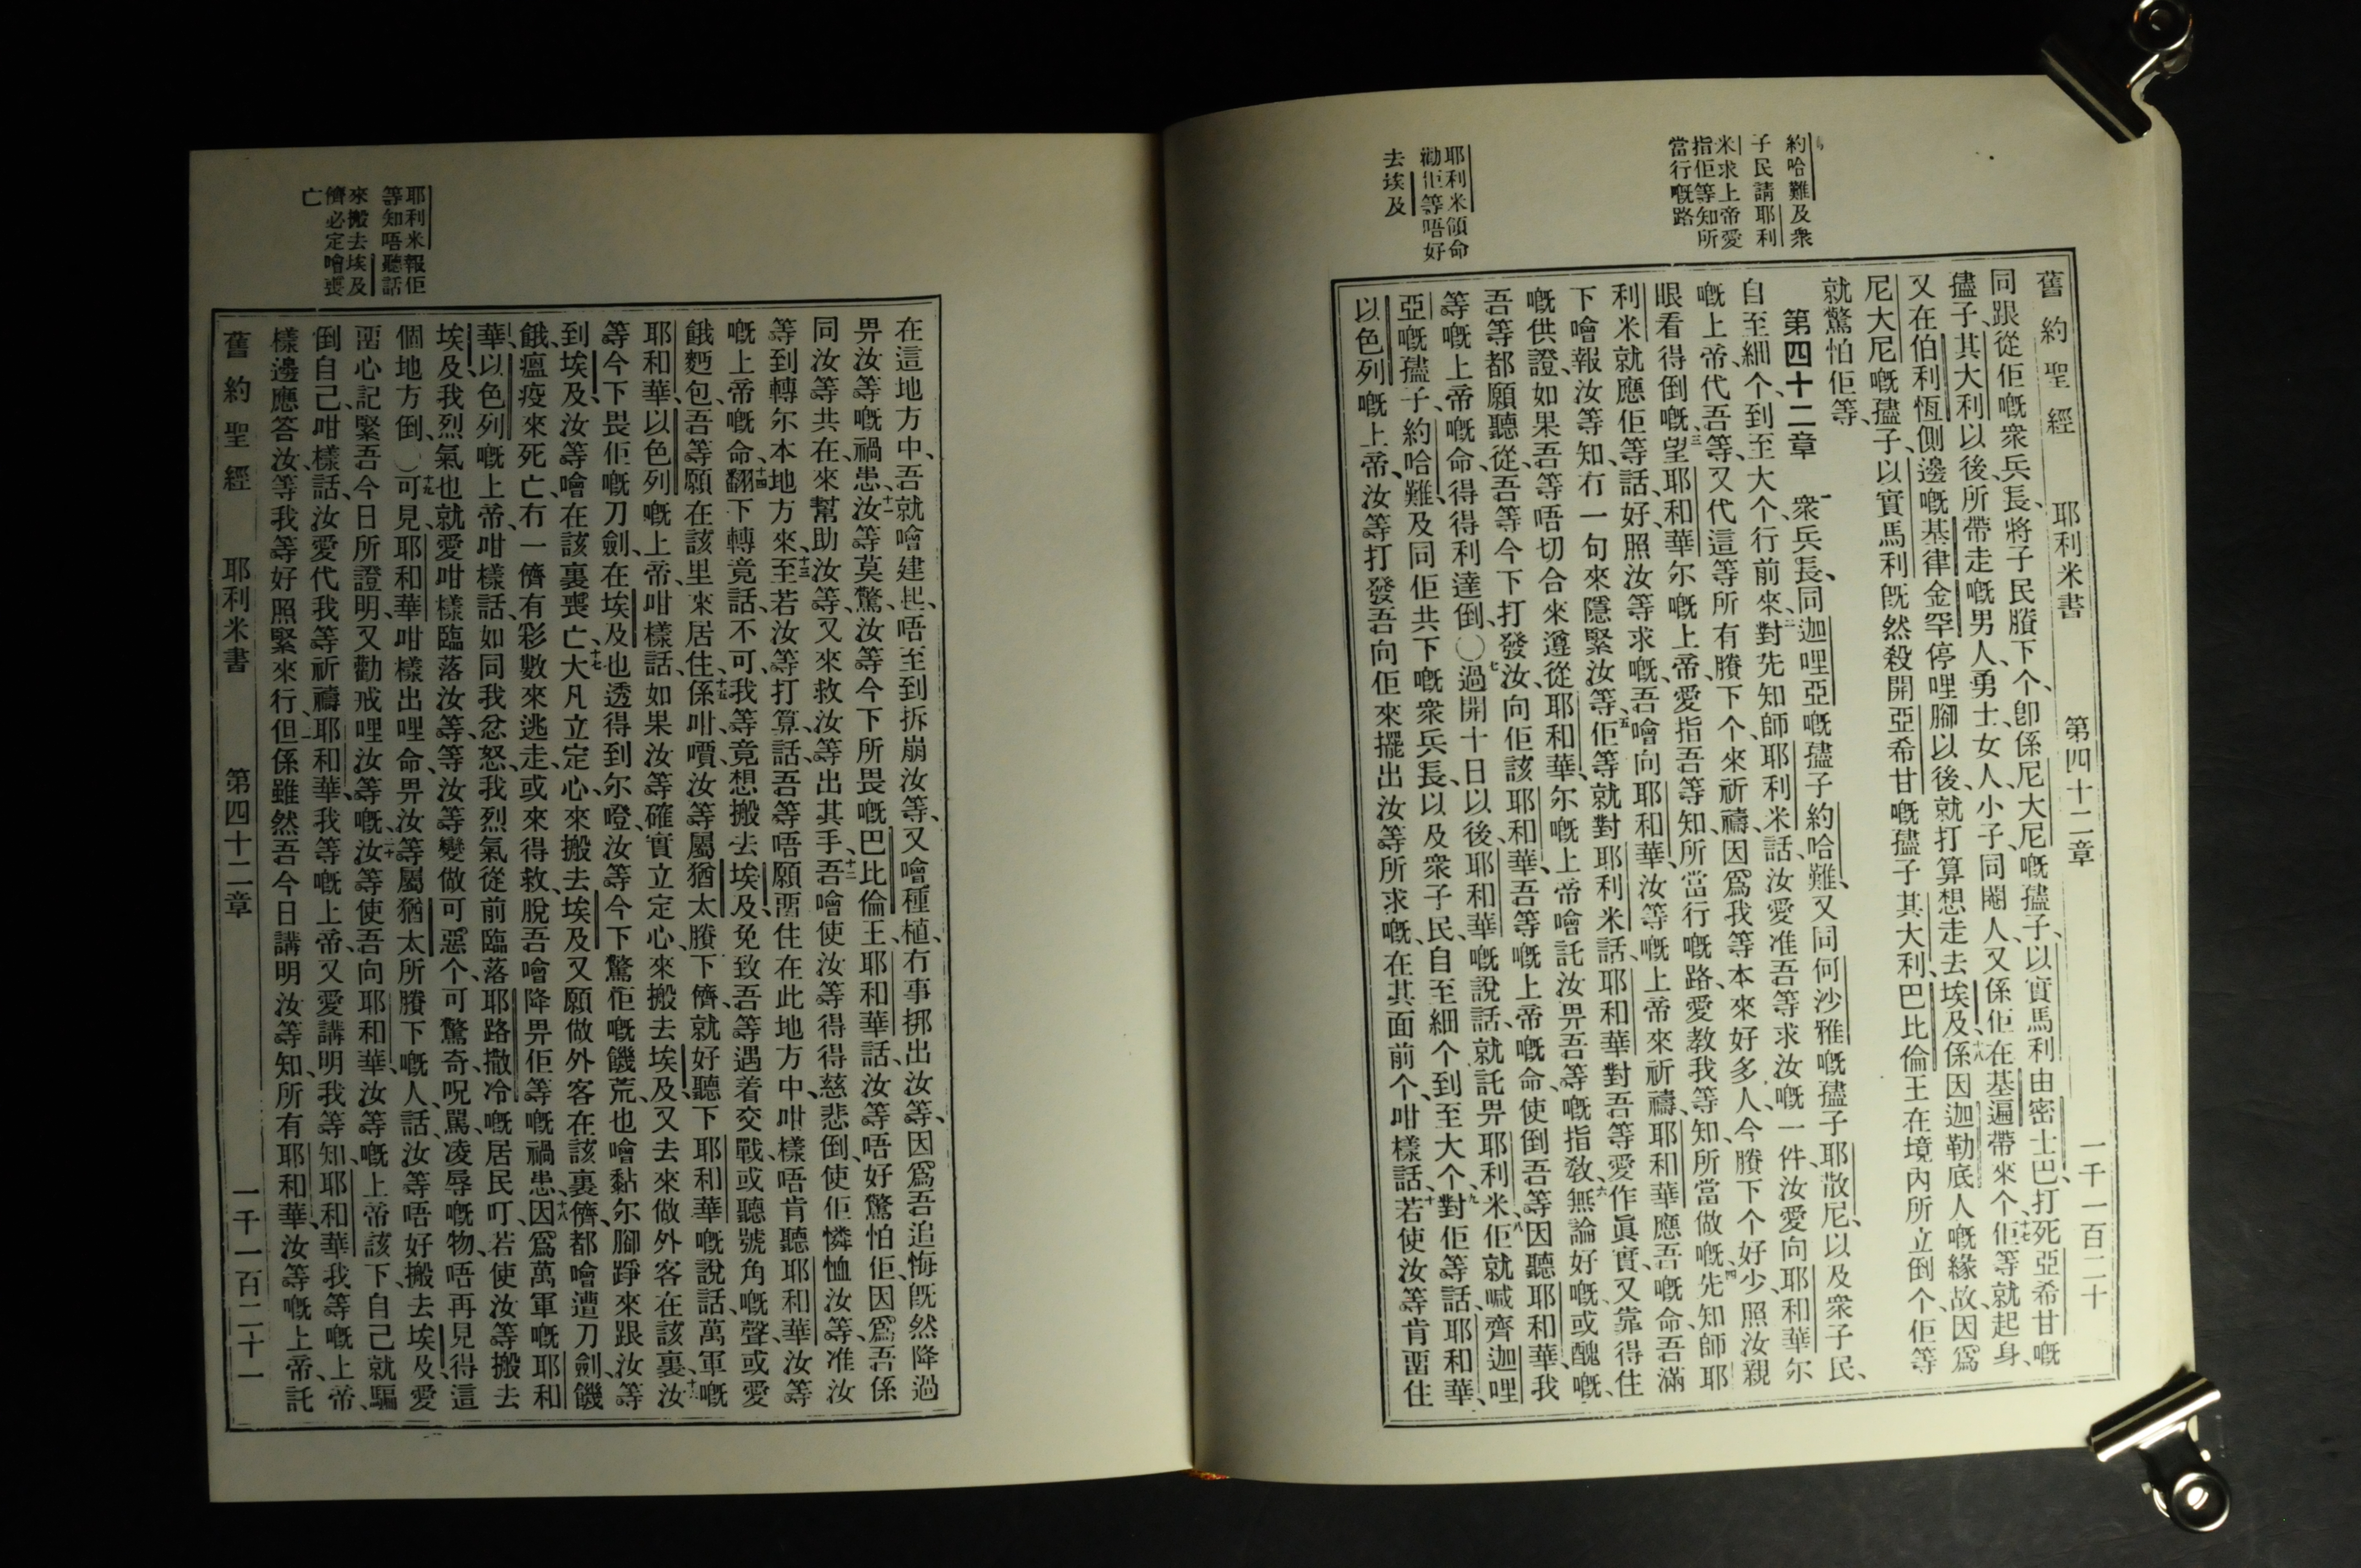 約哈難及衆
子民請耶利
米求上帝愛
指佢等知所
當行嘅路
耶利米領命
勸佢等唔好
去埃及
舊約聖經 耶利米書 第四十二章 一千一百二十
同跟從佢嘅衆兵長、將子民賸下个、卽係尼大尼嘅孻子、以實馬利由密士巴、打死亞希甘嘅
孻子、其大利以後、所帶走嘅男人、勇士、女人、小子、同閹人、又係佢在基遍帶來个、十七佢等就起身、
又在伯利恆側邊嘅基律金罕停哩腳以後、就打算想走去埃及、十八係因迦勒底人嘅緣故、因爲
尼大尼嘅孻子、以實馬利旣然殺開亞希甘嘅孻子其大利、巴比倫王在境內所立倒个、佢等
就驚怕佢等、
第四十二章 一衆兵長、同迦哩亞嘅孻子約哈難、又同何沙雅嘅孻子耶散尼、以及衆子民、
自至細个、到至大个、行前來、二對先知師耶利米話、汝愛准吾等求汝嘅一件、汝愛向耶和華尔
嘅上帝、代吾等、又代這等所有賸下个、來祈禱、因爲我等本來好多人、今賸下个好少、照汝親
眼看得倒嘅、三望耶和華尔嘅上帝、愛指吾等知、所當行嘅路、愛教我等知、所當做嘅、四先知師耶
利米就應佢等話、好、照汝等求嘅、吾噲向耶和華、汝等嘅上帝來祈禱、耶和華應吾嘅命、吾滿
下噲報汝等知、冇一句來隱緊汝等、五佢等就對耶利米話、耶和華對吾等愛作眞實、又靠得住
嘅供證、如果吾等唔切合來遵從耶和華、尔嘅上帝噲託汝畀吾等嘅指敎、六無論好嘅、或醜嘅、
吾等都願聽從、吾等今下打發汝、向佢該耶和華、吾等嘅上帝嘅命、使倒吾等因聽耶和華、我
等嘅上帝嘅命、得得利達倒、〇七過開十日以後、耶和華嘅說話、就託畀耶利米、八佢就喊齊迦哩
亞嘅孻子、約哈難、及同佢共下嘅衆兵長、以及衆子民、自至細个到至大个、九對佢等話、耶和華、
以色列嘅上帝、汝等打發吾向佢來擺出汝等所求嘅、在其面前个、咁樣話、十若使汝等肯畱住
耶利米報佢
等知唔聽話
來搬去埃及
儕必定噲喪
亡
在這地方中、吾就噲建起、唔至到拆崩汝等、又噲種植、冇事挷出汝等、因爲吾追悔旣然降過
畀汝等嘅禍患、十一汝等莫驚、汝等今下所畏嘅巴比倫王、耶和華話、汝等唔好驚怕佢、因爲吾係
同汝等共在、來幫助汝等、又來救汝等出其手、十二吾噲使汝等得得慈悲倒、使佢憐恤汝等、准汝
等到轉尔本地方來、十三至若汝等打算、話、吾等唔願畱住在此地方中、咁樣唔肯聽耶和華汝等
嘅上帝嘅命、十四翻下轉竟話、不可、我等竟想搬去埃及、免致吾等遇着交戰、或聽號角嘅聲、或愛
餓麪包、吾等願在該里來居住、十五係咁、嘳、汝等屬猶太賸下儕、就好聽下耶和華嘅說話、萬軍嘅
耶和華、以色列嘅上帝、咁樣話、如果汝等確實立定心、來搬去埃及、又去來做外客在該裏、十六汝
等今下畏佢嘅刀劍、在埃及也透得到尔、噔、汝等今下驚佢嘅饑荒、也噲黏尔腳踭來跟汝等
到埃及、汝等噲在該裏喪亡、十七大凡立定心、來搬去埃及、又願做外客在該裏儕、都噲遭刀劍、饑
餓、瘟疫來死亡、冇一儕有彩數來逃走、或來得救脫吾噲降畀佢等嘅禍患、十八因爲萬軍嘅耶和
華、以色列嘅上帝咁樣話、如同我忿怒、我烈氣從前臨落耶路撒冷嘅居民叮、若使汝等搬去
埃及、我烈氣也就愛咁樣臨落汝等、等汝等變做可惡个、可驚奇、呪罵、凌辱嘅物、唔再見得這
個地方倒、〇十九可見、耶和華咁樣出哩命、畀汝等屬猶太所賸下嘅人、話、汝等唔好搬去埃及、愛
畱心記緊吾今日所證明、又勸戒哩汝等嘅、二十汝等使吾向耶和華、汝等嘅上帝該下、自己就騙
倒自己、咁樣話、汝愛代我等祈禱耶和華、我等嘅上帝、又愛講明我等知、耶和華我等嘅上帝、
樣邊應答汝、等我等好照緊來行、二一但係雖然吾今日講明汝等知、所有耶和華、汝等嘅上帝、託
舊約聖經 耶利米書 第四十二章 一千一百二十一